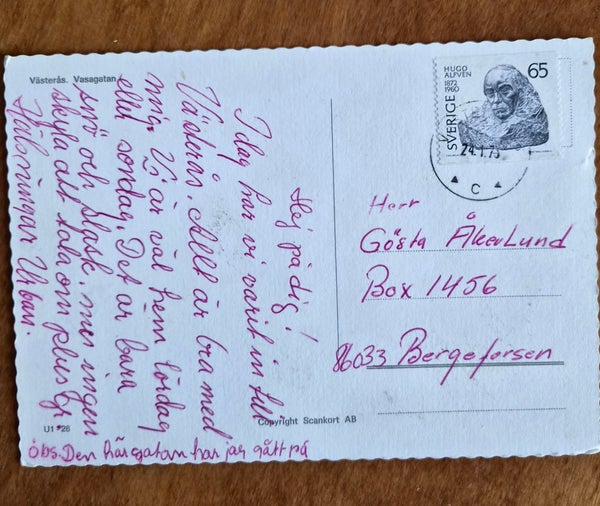 Västerås. Vasagatan
Hej på dig!
Idag har vi varit in till
Västerås. Allt är bra med
mig. Vi är väl hem lördag
eller söndag. Det är bara
snö och plask, men ingen
kyla att tala om plus
Hälsningar Urban.
U1 26
obs. Den här gatan har jag gått på
Copyright Scankort AB
HUGO
ALFVEN
1872
1960
65
SVERIGE
24.1.73
C
Herr
Gösta Åkerlund
Box 1456
86033 Bergeforsen